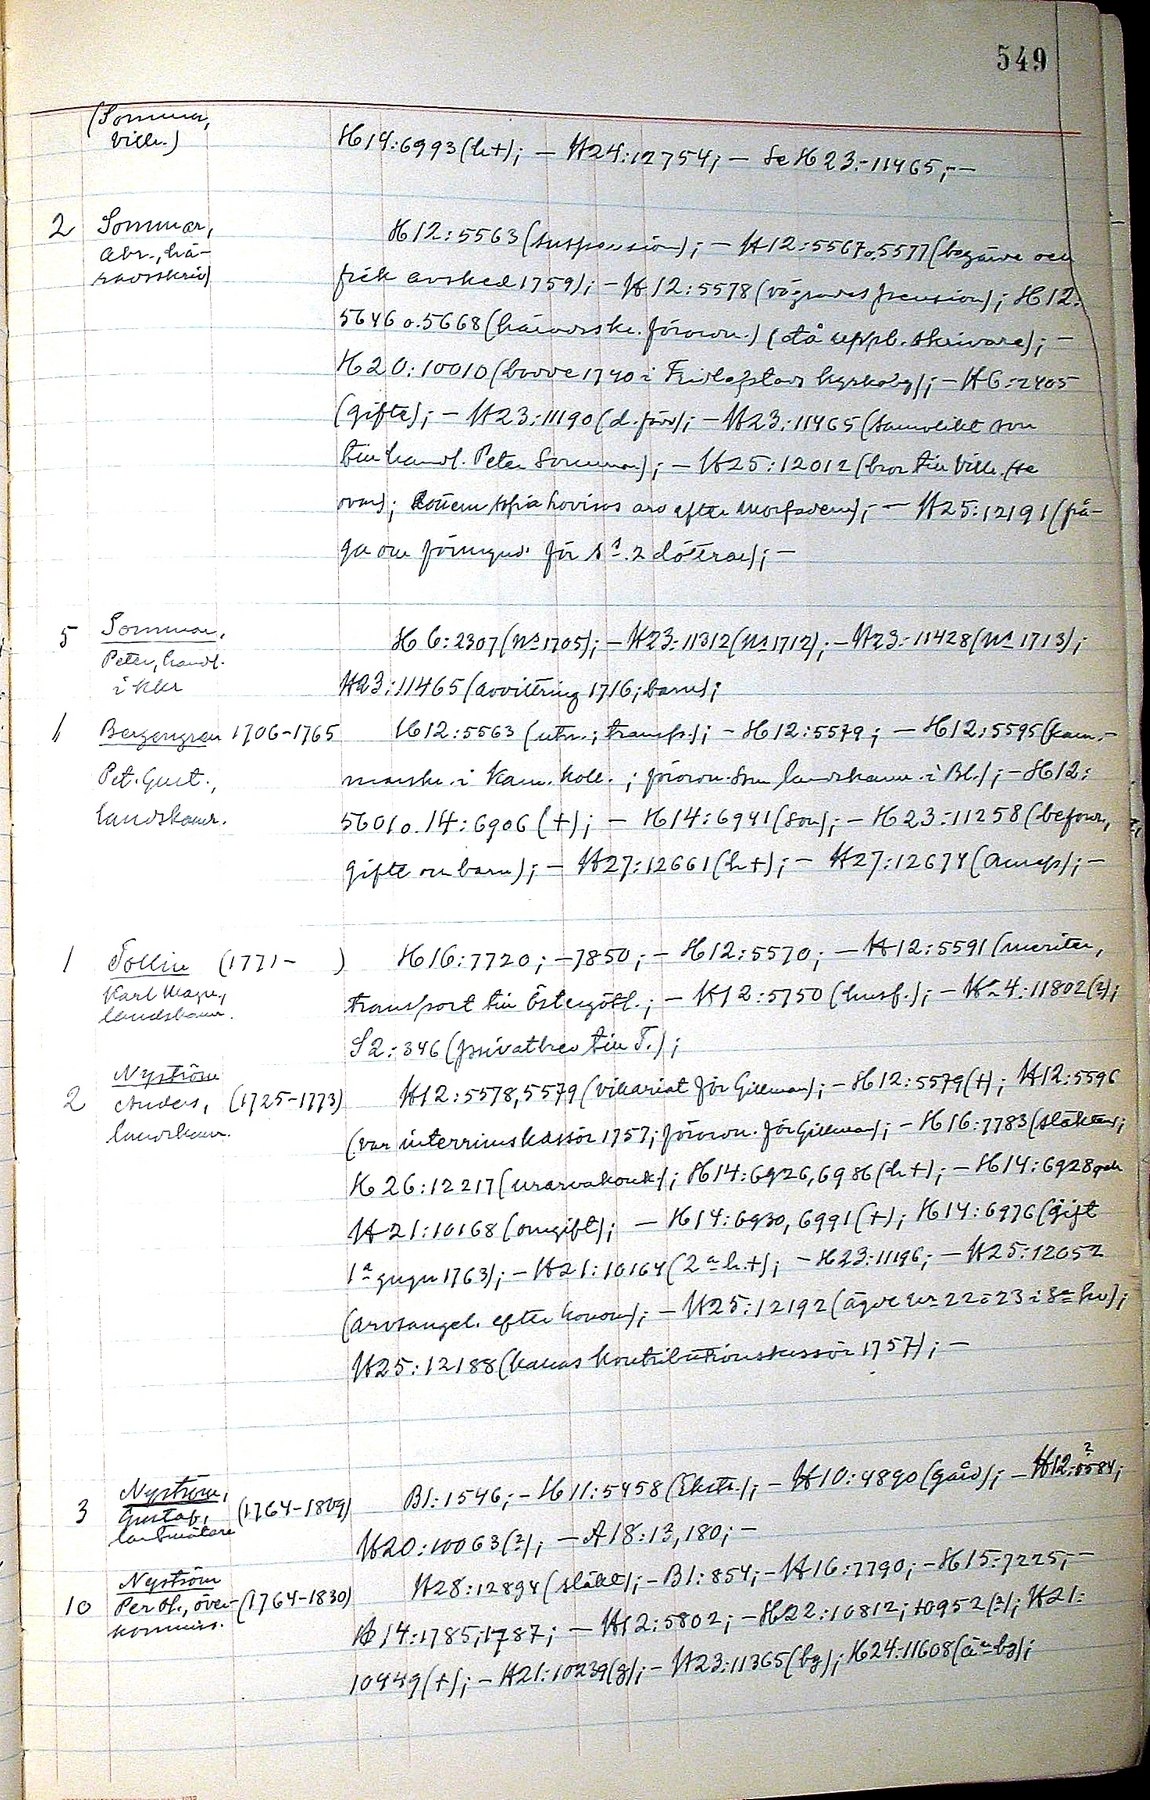 549
(Sommar,
Vilh.)
H14:6993(h+); — H24:12754; — Se H23:-11465,-—
2 Sommar,
Abr., hä-
radsskriv)
H12:5563 (suspension); — H12:5567 o. 5577 (begärde och
fick avsked 1759); — H12:5578 (vägrades pension); H12:
5646 o. 5668 (häradsskr. förordn.) (då uppb. skrivare); —
H20:10010 (bodde 1740 i Fridlefstads kyrkoby); — H6:2405
(gifte); — H23:11190 (d. förs); — H23:11465 (sannolikt son
till handl. Peter Sommar); — H25:12012 (bror till Vilh. (se
ovan); Sofia Lovisas arv efter morfadern); — H25:12191 (frå-
ga om förmynd. för 2 döttrar); —
5 Sommar,
Peter, handl.
i Khr
H6:2307 (№ 1705); — H23:11312 (№ 1712); — H23:11428 (№ 1713);
H23:11465 (avvittring 1716; barn);
1 Bergengren 1706-1765
Pet. Gust.,
landskamr.
H12:5563 (utn.; transp.); — H12:5579; — H12:5595 (kam.-
i Kam. Koll.; förordn. som landskamr. i Bl.); — H12:
5601 o. 14:6906 (+); — H14:6941 (son); — H23:11258 (befordr,
gifte och barn); — H27:12661 (h+); — H27:12674 (); —
1 Tollin (1771- )
Karl Magn.,
landskamr.
H16:7720; —7850; — H12:5570; — H12:5591 (meriter,
transport till Östergötl.; — H12:5750 (husf.); — 4:11802(?);
S2:346 (privatbrev till T.);
2 Nyström
Anders, (1725-1773)
landskamr.
H12:5578, 5579 (vikariat för Gillman); — H12:5579 (+); H12:5596
(var interrimskassör 1757; förordn. för Gillman); — H16:7783 (släkten);
H26:12217 (urarvakonk); H14:6926, 6986 (h+); — H14:6928 och
H21:10168 (omgift); — H14:6930, 6991 (+); H14:6976 (gift
1ª gugn 1763); — H21:10164 (2ª h.+); — H23:11196; — H25:12052
(arvsangel. efter honom); — H25:12192 (ägde nr 22 o 23 i 8ª kv);
H25:12188 (kallas kontributionskassör 1757); —
3 Nyström,
Gustaf, (1764-1809)
lantmätare
B1:1546; — H11:5458 (Ekstr.); — H10:4890 (gård); — H12:5584?;
H20:10063 (?); — A18:13, 180; —
10 Nyström
Per Ol., över- (1764-1830)
kommiss.
H28:12894 (släkt); — B1:854; — H16:7790; — H15:7225; —
14:1785; 1787; — H12:5802; — H22:10812; 10952 (?); H21:
10449 (+); — H21:10239 (g); — H23:11365 (bg); H24:11608 (äª bg);